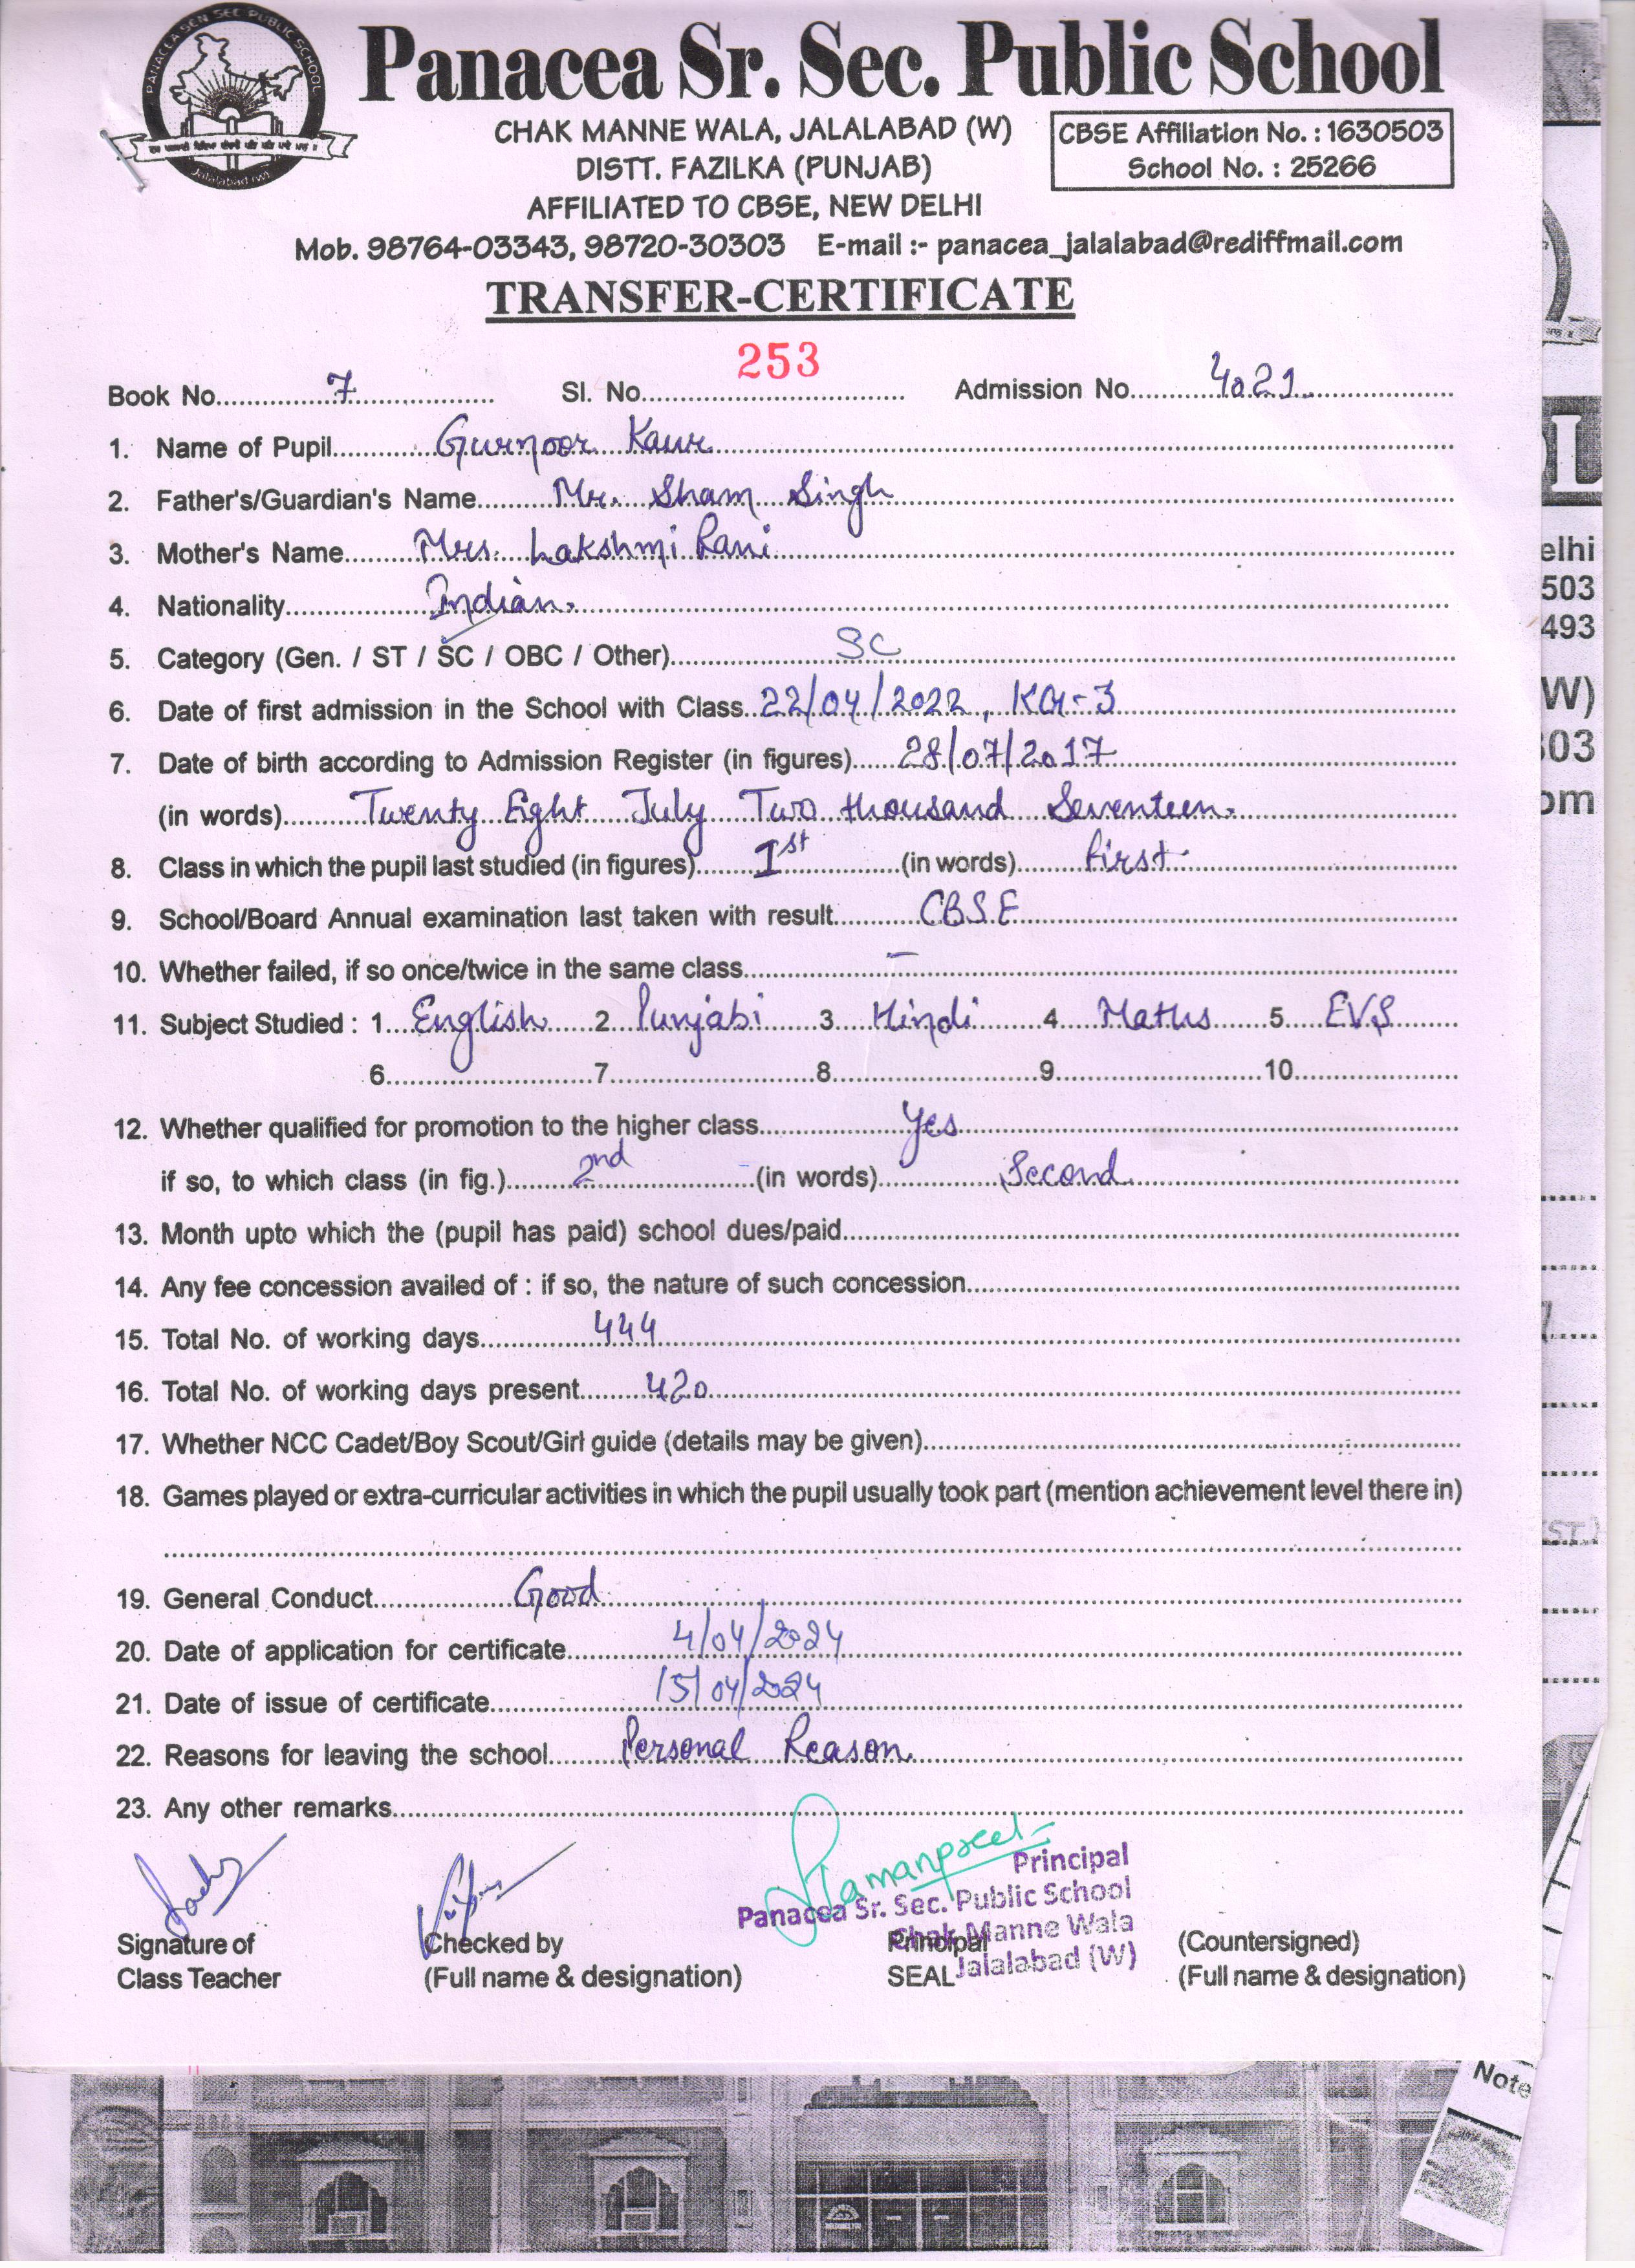 PANACEA SEN SEC PUBLIC SCHOOL
Jalalabad (W)
Panacea Sr. Sec. Public School
CHAK MANNE WALA, JALALABAD (W)
DISTT. FAZILKA (PUNJAB)
AFFILIATED TO CBSE, NEW DELHI
CBSE Affiliation No. : 1630503
School No. : 25266
Mob. 98764-03343, 98720-30303 E-mail :- panacea_jalalabad@rediffmail.com
TRANSFER-CERTIFICATE
Book No. 7 Sl. No. 253 Admission No. 4021
1. Name of Pupil Gurnoor Kaur
2. Father's/Guardian's Name Mr. Sham Singh
3. Mother's Name Mrs. Lakshmi Rani
4. Nationality Indian.
5. Category (Gen. / ST / SC / OBC / Other) SC
6. Date of first admission in the School with Class 22/04/2022, KG-3
7. Date of birth according to Admission Register (in figures) 28/07/2017
(in words) Twenty Eight July Two thousand Seventeen.
8. Class in which the pupil last studied (in figures) 1st (in words) First
9. School/Board Annual examination last taken with result C.B.S.E
10. Whether failed, if so once/twice in the same class —
11. Subject Studied : 1 English 2 Punjabi 3 Hindi 4 Maths 5 EVS
6 7 8 9 10
12. Whether qualified for promotion to the higher class Yes
if so, to which class (in fig.) 2nd (in words) Second
13. Month upto which the (pupil has paid) school dues/paid
14. Any fee concession availed of : if so, the nature of such concession
15. Total No. of working days 444
16. Total No. of working days present 420
17. Whether NCC Cadet/Boy Scout/Girl guide (details may be given)
18. Games played or extra-curricular activities in which the pupil usually took part (mention achievement level there in)
19. General Conduct Good
20. Date of application for certificate 4/04/2024
21. Date of issue of certificate 15/04/2024
22. Reasons for leaving the school Personal Reason
23. Any other remarks
Principal
Panacea Sr. Sec. Public School
Chak Manne Wala
Jalalabad (W)
Signature of
Class Teacher
Checked by
(Full name & designation)
Principal
SEAL
(Countersigned)
(Full name & designation)
L
elhi
503
493
W)
303
om
ST.)
Note